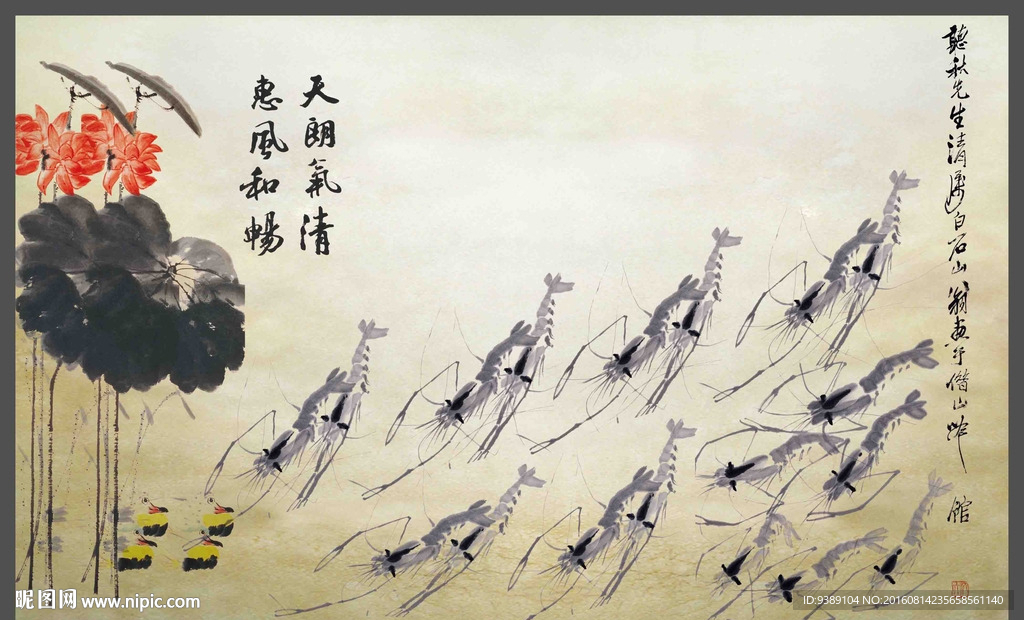 天朗氣清
惠風和暢
聽秋先生清屬白石山翁畫于借山吟館
昵图网 www.nipic.com
ID:9389104 NO:20160814235658561140